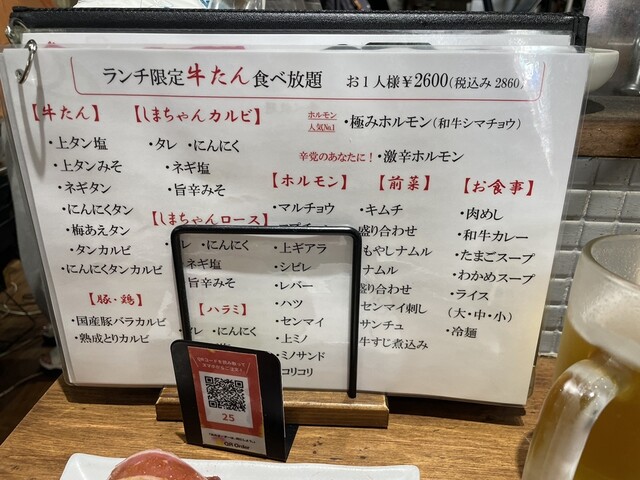 ランチ限定 牛たん 食べ放題 お1人様￥2600(税込み 2860)
【牛たん】
・上タン塩
・上タンみそ
・ネギタン
・にんにくタン
・梅あえタン
・タンカルビ
・にんにくタンカルビ
【豚・鶏】
・国産豚バラカルビ
・熟成とりカルビ
【しまちゃんカルビ】
・タレ ・にんにく
・ネギ塩
・旨辛みそ
【しまちゃんロース】
・にんにく
ネギ塩
旨辛みそ
【ハラミ】
タレ ・にんにく
ホルモン人気No1
・極みホルモン(和牛シマチョウ)
辛党のあなたに！・激辛ホルモン
【ホルモン】
・マルチョウ
・上ギアラ
・シビレ
・レバー
・ハツ
・センマイ
・上ミノ
・ミノサンド
コリコリ
【前菜】
・キムチ
盛り合わせ
もやしナムル
ナムル
盛り合わせ
センマイ刺し
サンチュ
牛すじ煮込み
【お食事】
・肉めし
・和牛カレー
・たまごスープ
・わかめスープ
・ライス
(大・中・小)
・冷麺
QRコードを読み取って
25
QR Order